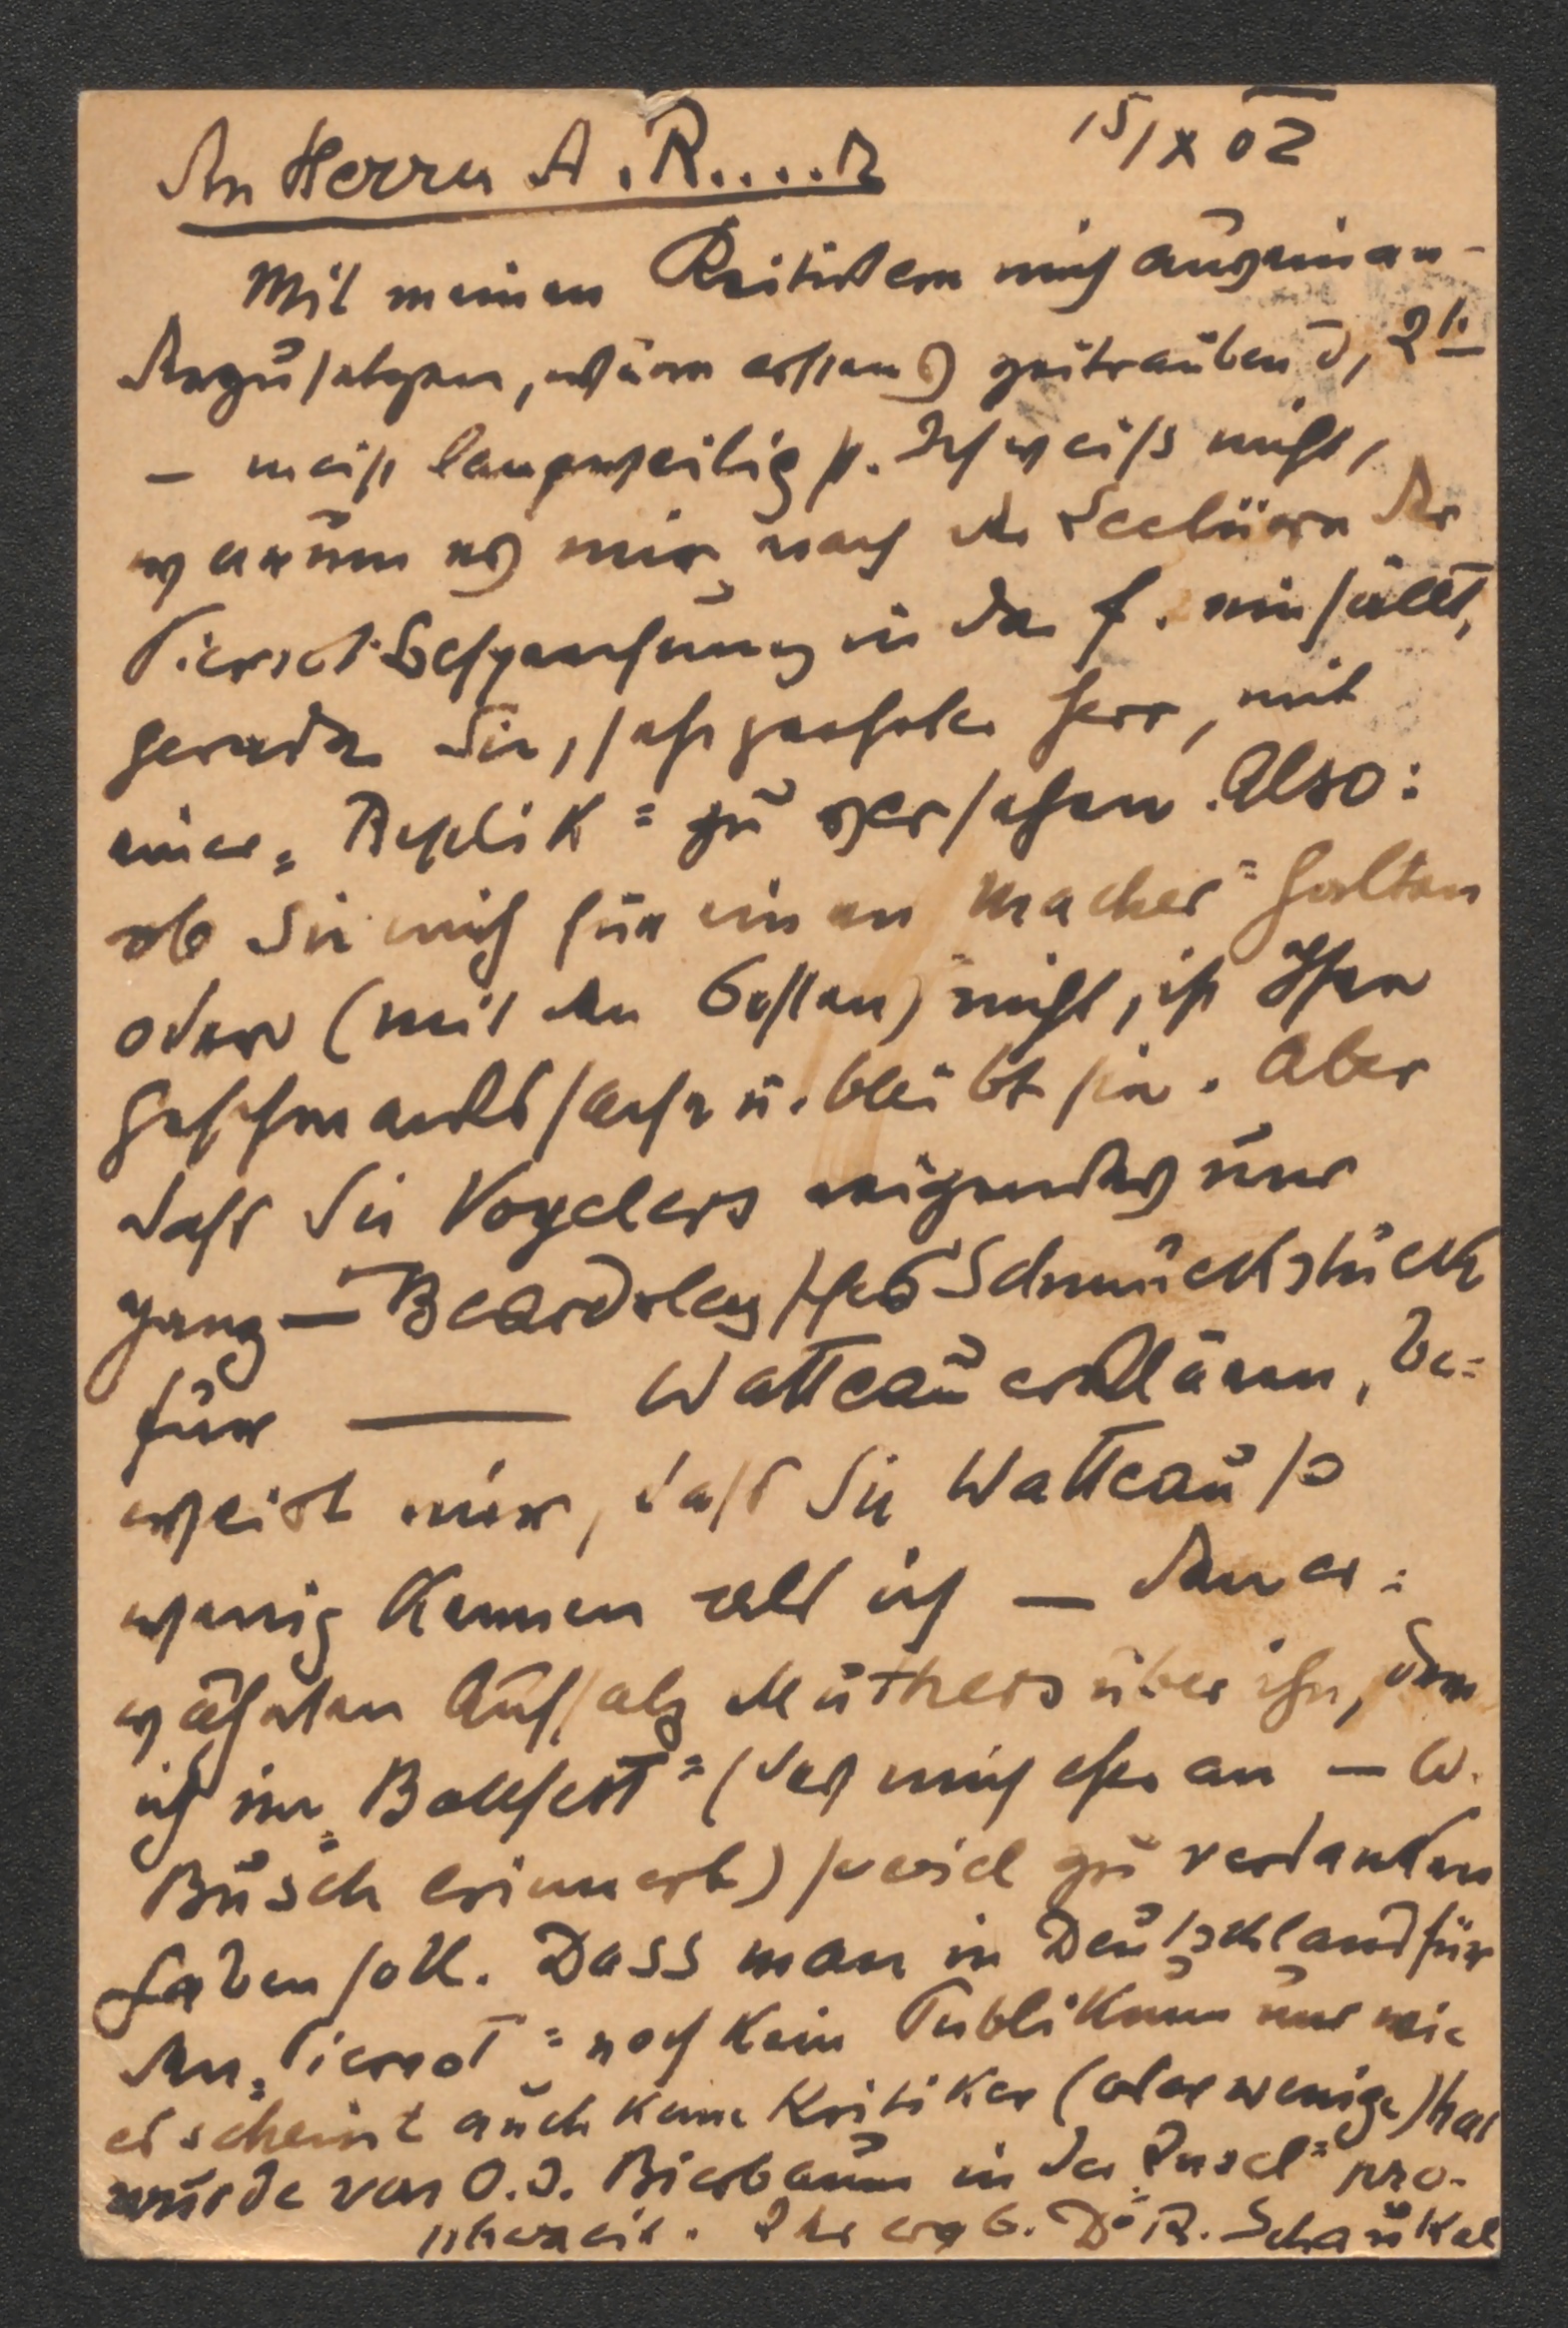 An Herrn A. R.....r
15/X 02
Mit meinen Kritikern mich auseinan-
derzusetzen, wäre erstens zeitraubend, 2t.
– meist langweilig. Ich weiß nicht,
warum es mir nach der Lectüre der
Pierrot-Besprechung in der f. einfällt,
gerade Sie, sehr geehrter Herr, mit
einer „Replik“ zu versehen. Also:
ob Sie mich für einen „Macher“ halten
oder (mit den Besten) nicht, ist Ihre
Geschmackssache u. bleibt sie. Aber
dass Sie Vogelers eigendes nur
ganz — Beardsley'sches Schmuckstück
für — Watteau erklären, be-
weist mir, dass Sie Watteau so
wenig kennen als ich — den er-
wähnten Aufsatz Muthers über ihn, dem
ich im „Ballfest“ (das mich eher an — W.
Busch erinnert) soviel zu verdanken
haben soll. Dass man in Deutschland für
den „Pierrot“ noch kein Publikum und wie
es scheint auch keine Kritiker (oder wenige) hat
wurde von O. J. Bierbaum in der „Insel“ pro-
phezeit. Ihr ergb. Dr. R. Schaukal